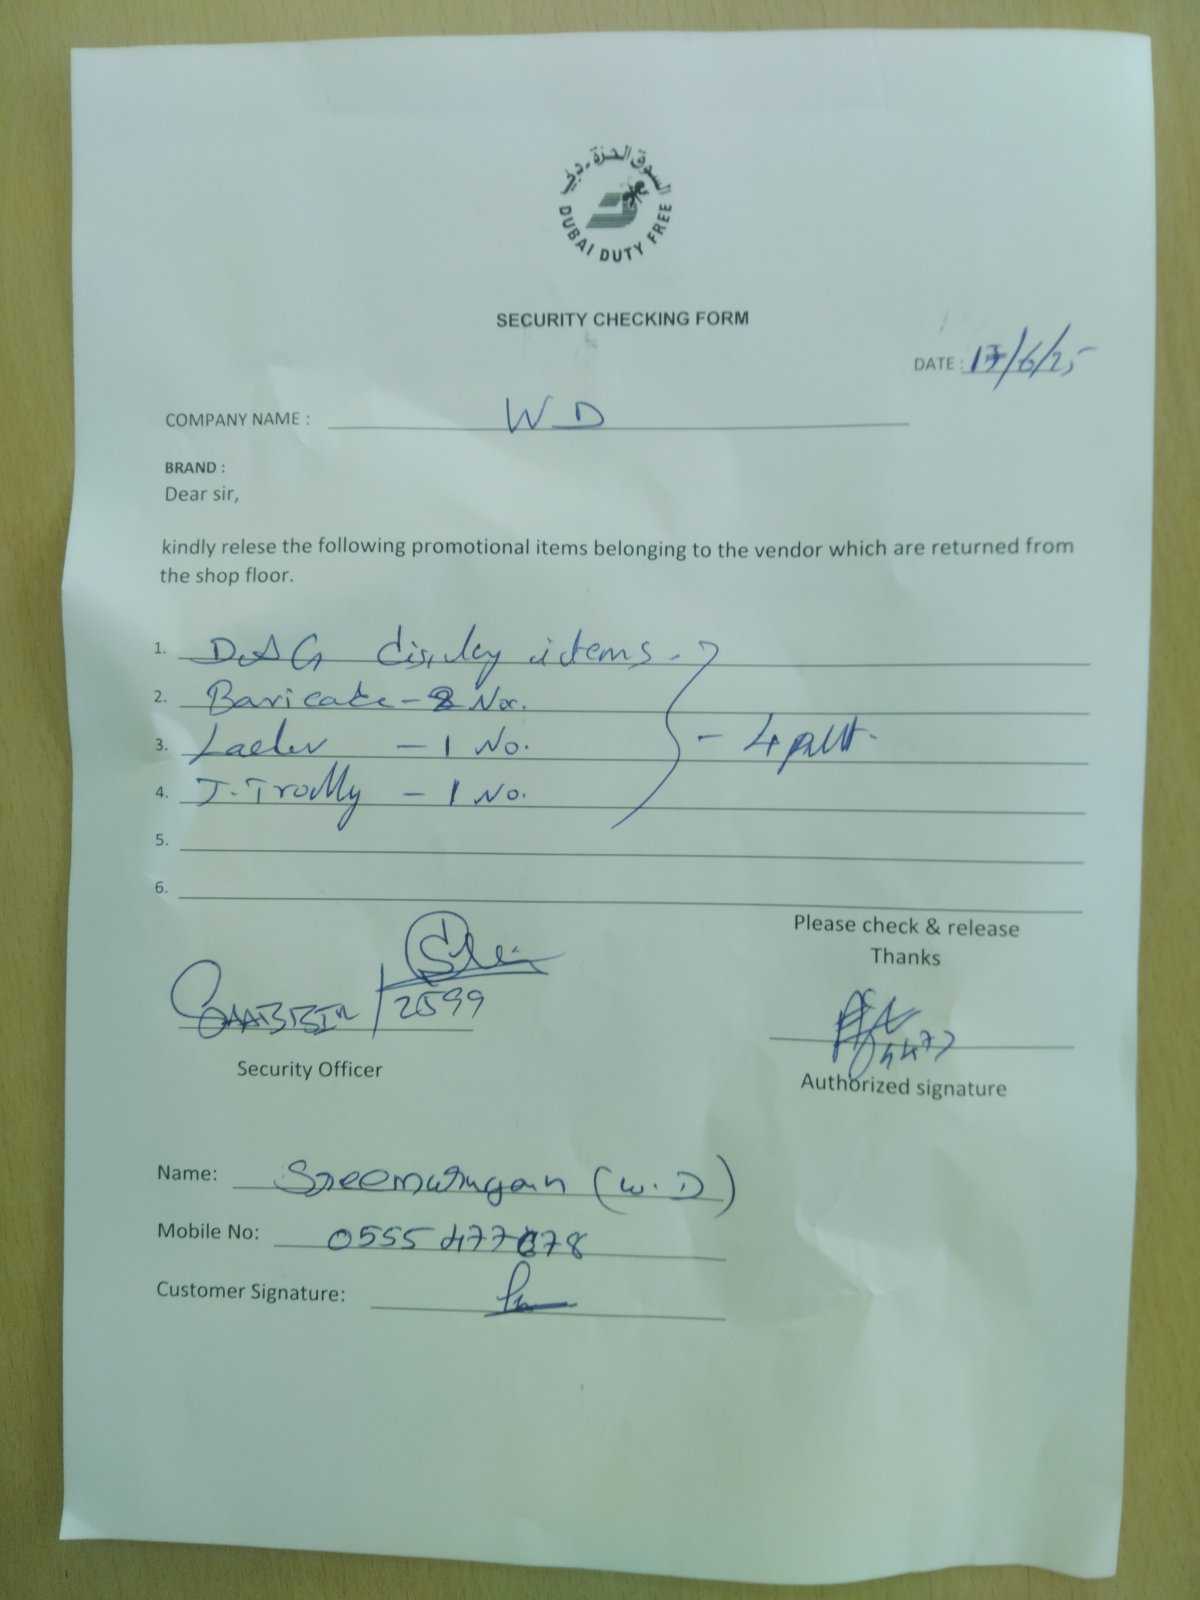 السوق الحرة - دبي
DUBAI DUTY FREE
SECURITY CHECKING FORM
DATE : 17/6/25
COMPANY NAME : W D
BRAND :
Dear sir,
kindly relese the following promotional items belonging to the vendor which are returned from
the shop floor.
1. display items.
2. Baricade - Nos.
3. Lader - 1 No.
4. J. Trolly - 1 No.
- 4 pllt.
5.
6.
Please check & release
Thanks
2599
4477
Security Officer
Authorized signature
Name: Sreemurugan (W.D)
Mobile No:
Customer Signature: